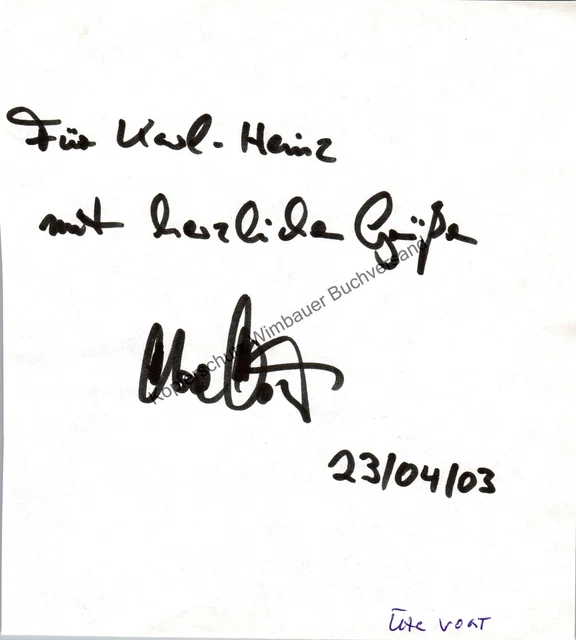 Für Karl-Heinz
mit herzlichen Grüßen
Kopierschutz Wimbauer Buchversand
Ute Vogt
23/04/03
Ute VOGT